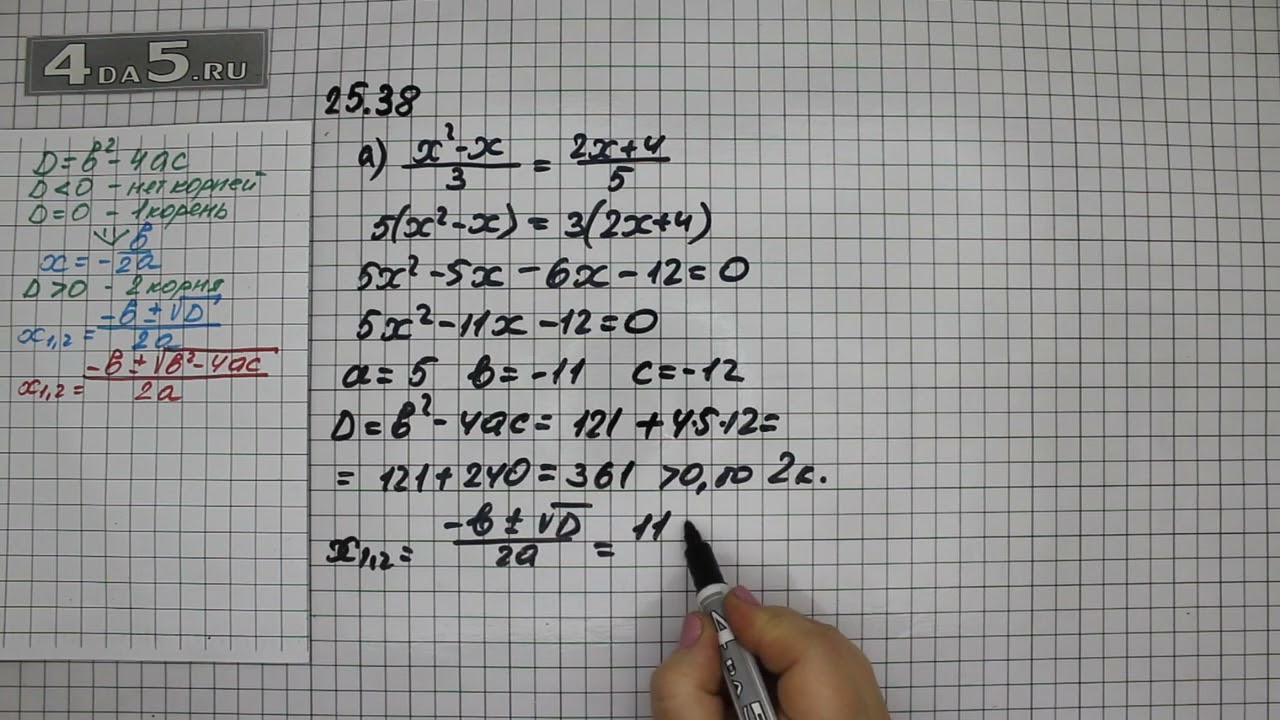 4DA5.RU
D = в² - 4ac
D < 0 - нет корней
D = 0 - 1 корень
x = -в/2a
D > 0 - 2 корня
x₁,₂ = (-в ± √D)/2a
x₁,₂ = (-в ± √(в² - 4ac))/2a
25.38
а) (x² - x)/3 = (2x + 4)/5
5(x² - x) = 3(2x + 4)
5x² - 5x - 6x - 12 = 0
5x² - 11x - 12 = 0
a = 5 в = -11 c = -12
D = в² - 4ac = 121 + 4·5·12 =
= 121 + 240 = 361 > 0, то 2к.
x₁,₂ = (-в ± √D)/2a = 11